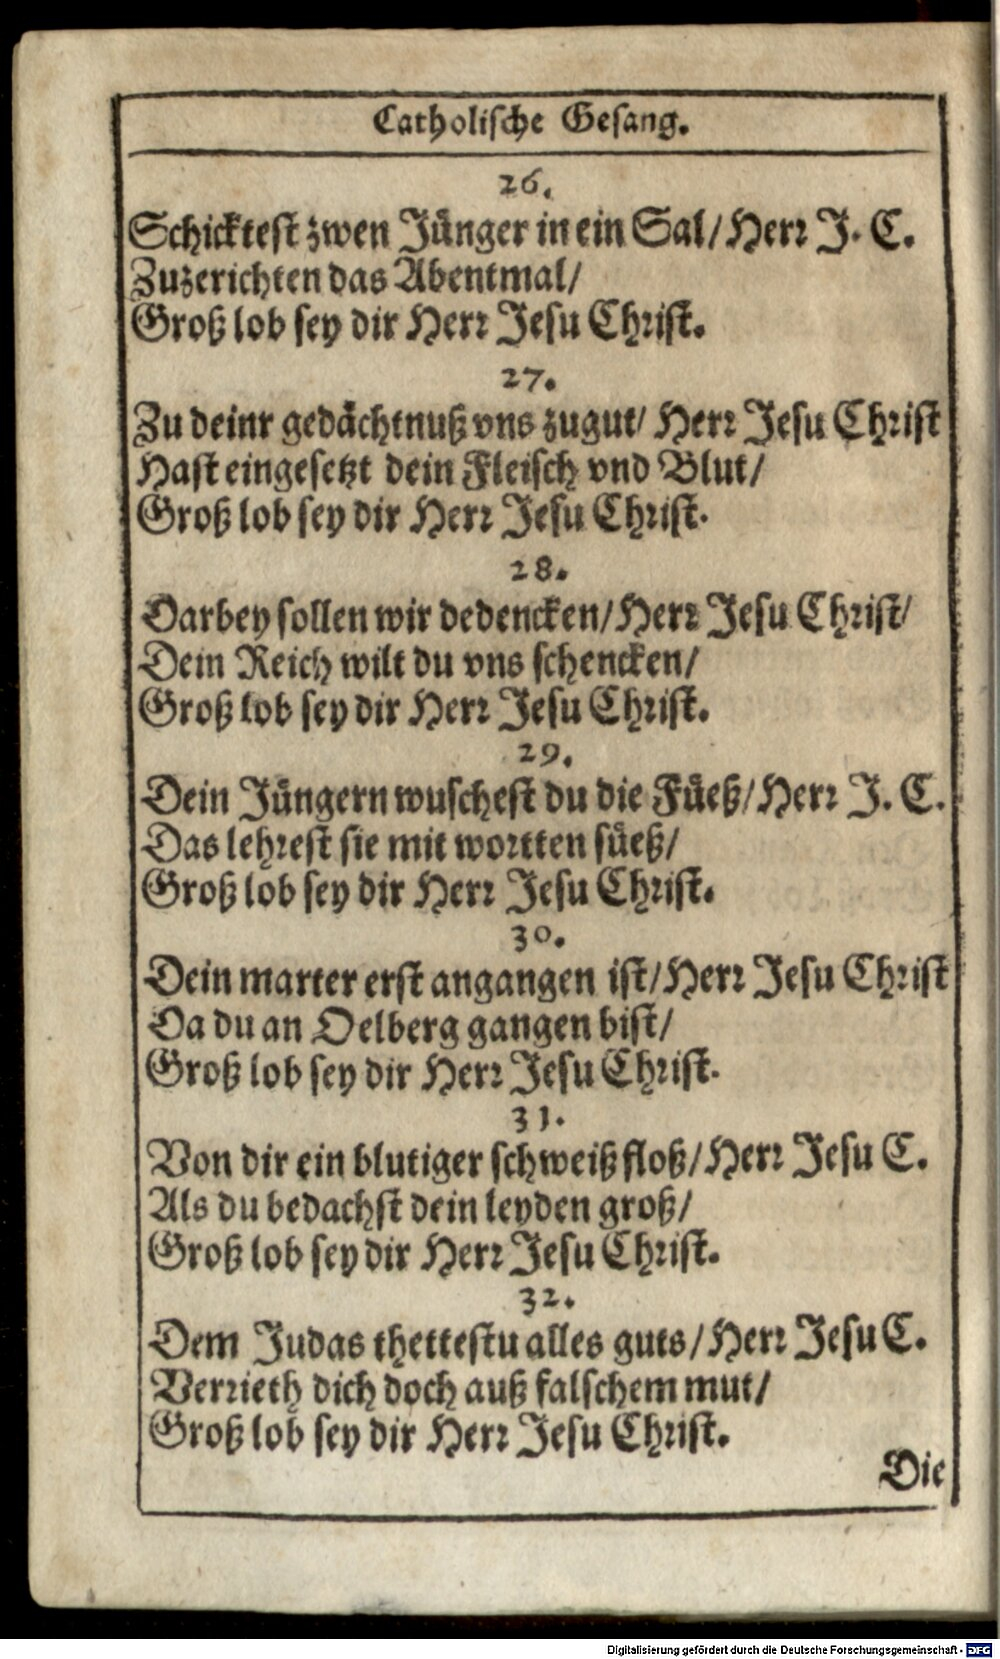 Catholische Gesang.
26.
Schicktest zwen Jünger in ein Sal/ Herr J. C.
Zuzerichten das Abentmal/
Groß lob sey dir Herr Jesu Christ.
27.
Zu deinr gedächtnuß vns zugut/ Herr Jesu Christ
Hast eingesetzt dein Fleisch vnd Blut/
Groß lob sey dir Herr Jesu Christ.
28.
Darbey sollen wir dedencken/ Herr Jesu Christ/
Dein Reich wilt du vns schencken/
Groß lob sey dir Herr Jesu Christ.
29.
Dein Jüngern wuschest du die Füeß/ Herr J. C.
Das lehrest sie mit wortten süeß/
Groß lob sey dir Herr Jesu Christ.
30.
Dein marter erst angangen ist/ Herr Jesu Christ
Da du an Oelberg gangen bist/
Groß lob sey dir Herr Jesu Christ.
31.
Von dir ein blutiger schweiß floß/ Herr Jesu C.
Als du bedachst dein leyden groß/
Groß lob sey dir Herr Jesu Christ.
32.
Dem Judas thettestu alles guts/ Herr Jesu C.
Verrieth dich doch auß falschem mut/
Groß lob sey dir Herr Jesu Christ.
Die
Digitalisierung gefördert durch die Deutsche Forschungsgemeinschaft - DFG